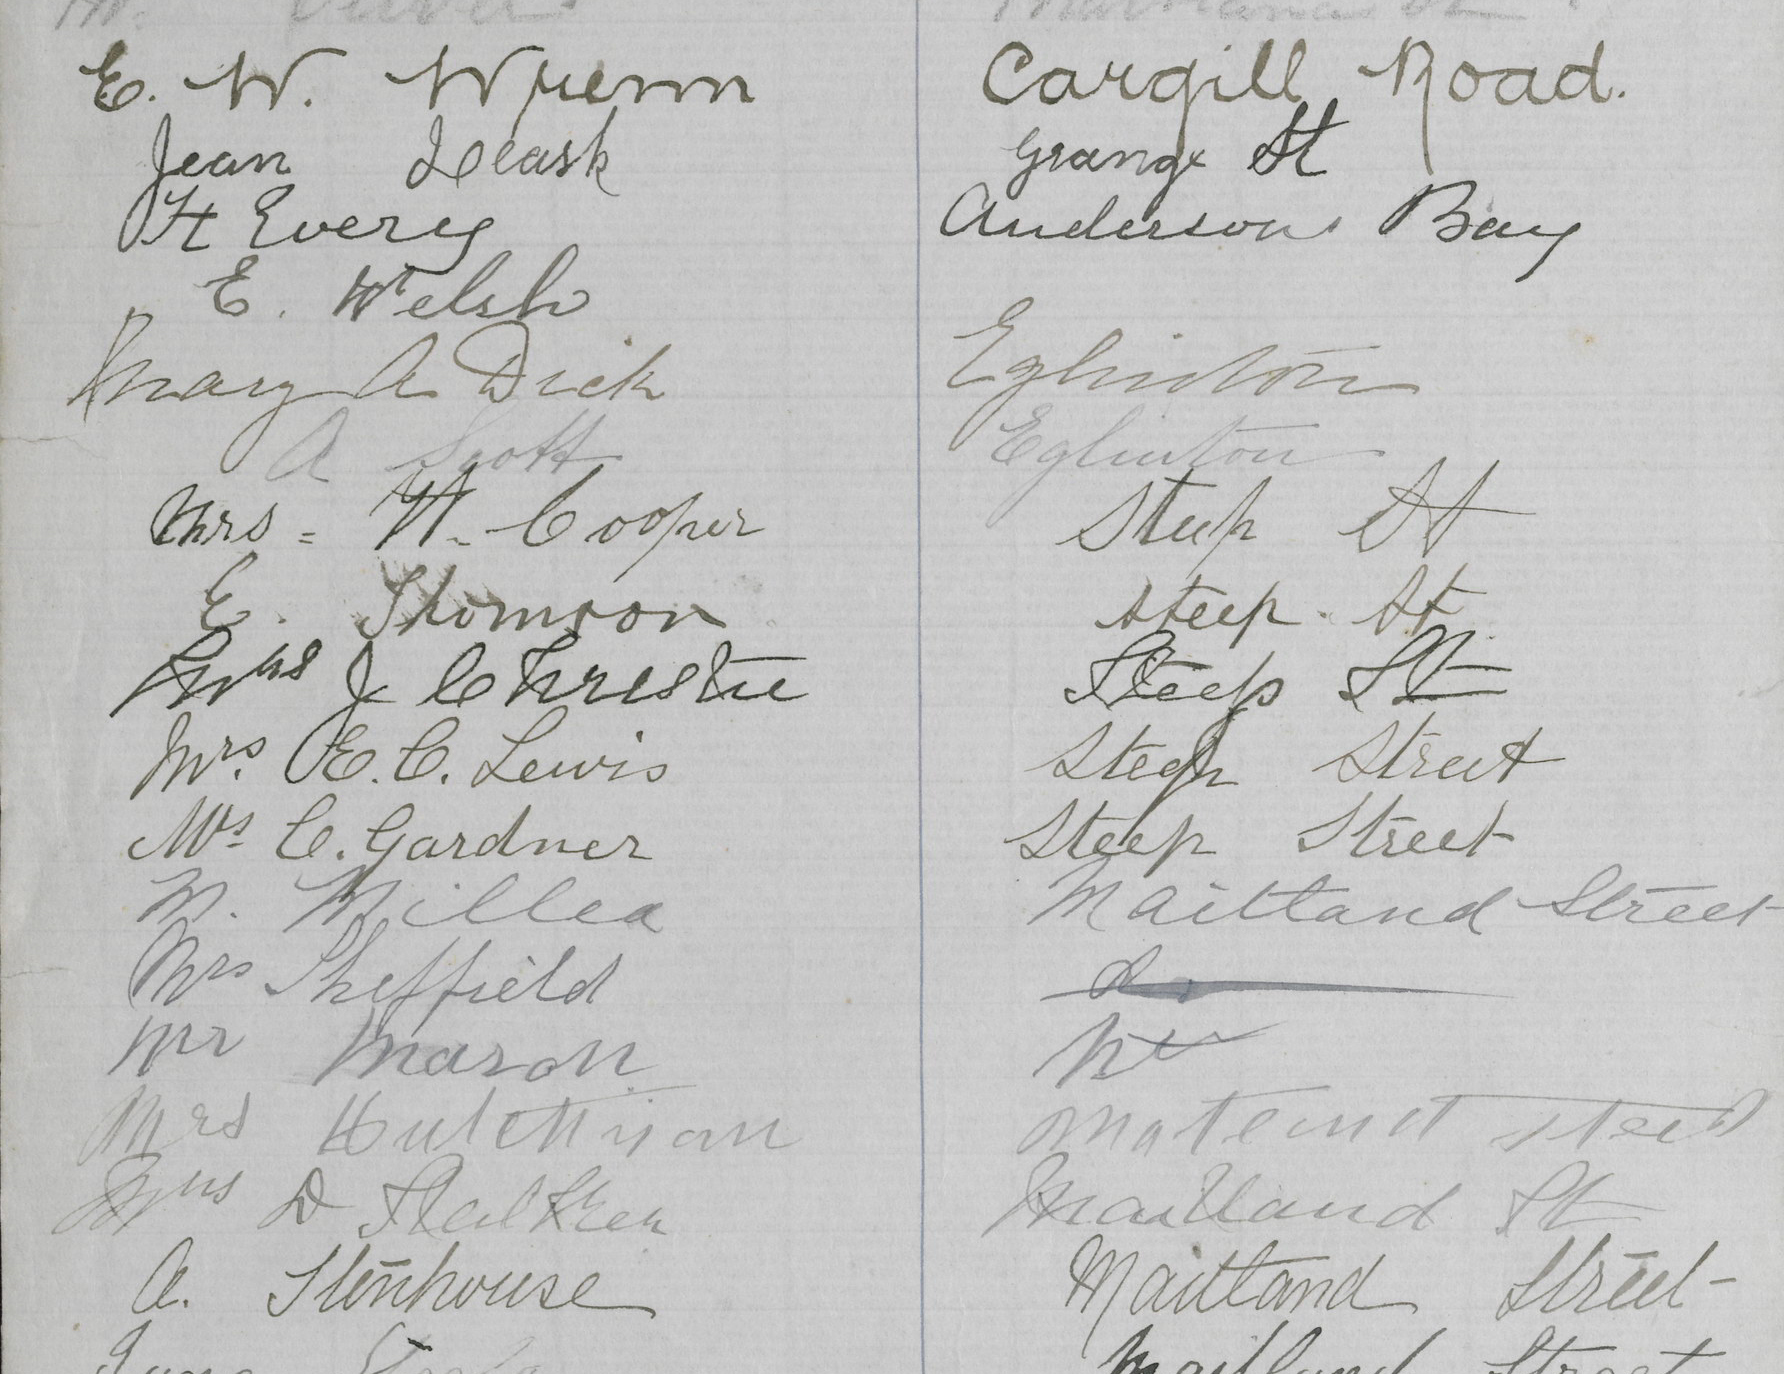 E. W. Wrenn Cargill Road.
Jean Leask Grange St
H Every Andersons Bay
E. Welsh
Mary A Dick Eglinton
A Scott Eglinton
Mrs = W. Cooper Steep St
E. Thomson Steep. St.
Mrs J Christie Steep St
Mrs. E. C. Lewis Steep Street
Mrs C. Gardner Steep Street
M. Millea Maitland Street
Mrs Sheffield
Mr Mason
Mrs Hutchison steet
Mrs D Maitland St
A. Stenhouse Maitland Street
Maitland Street